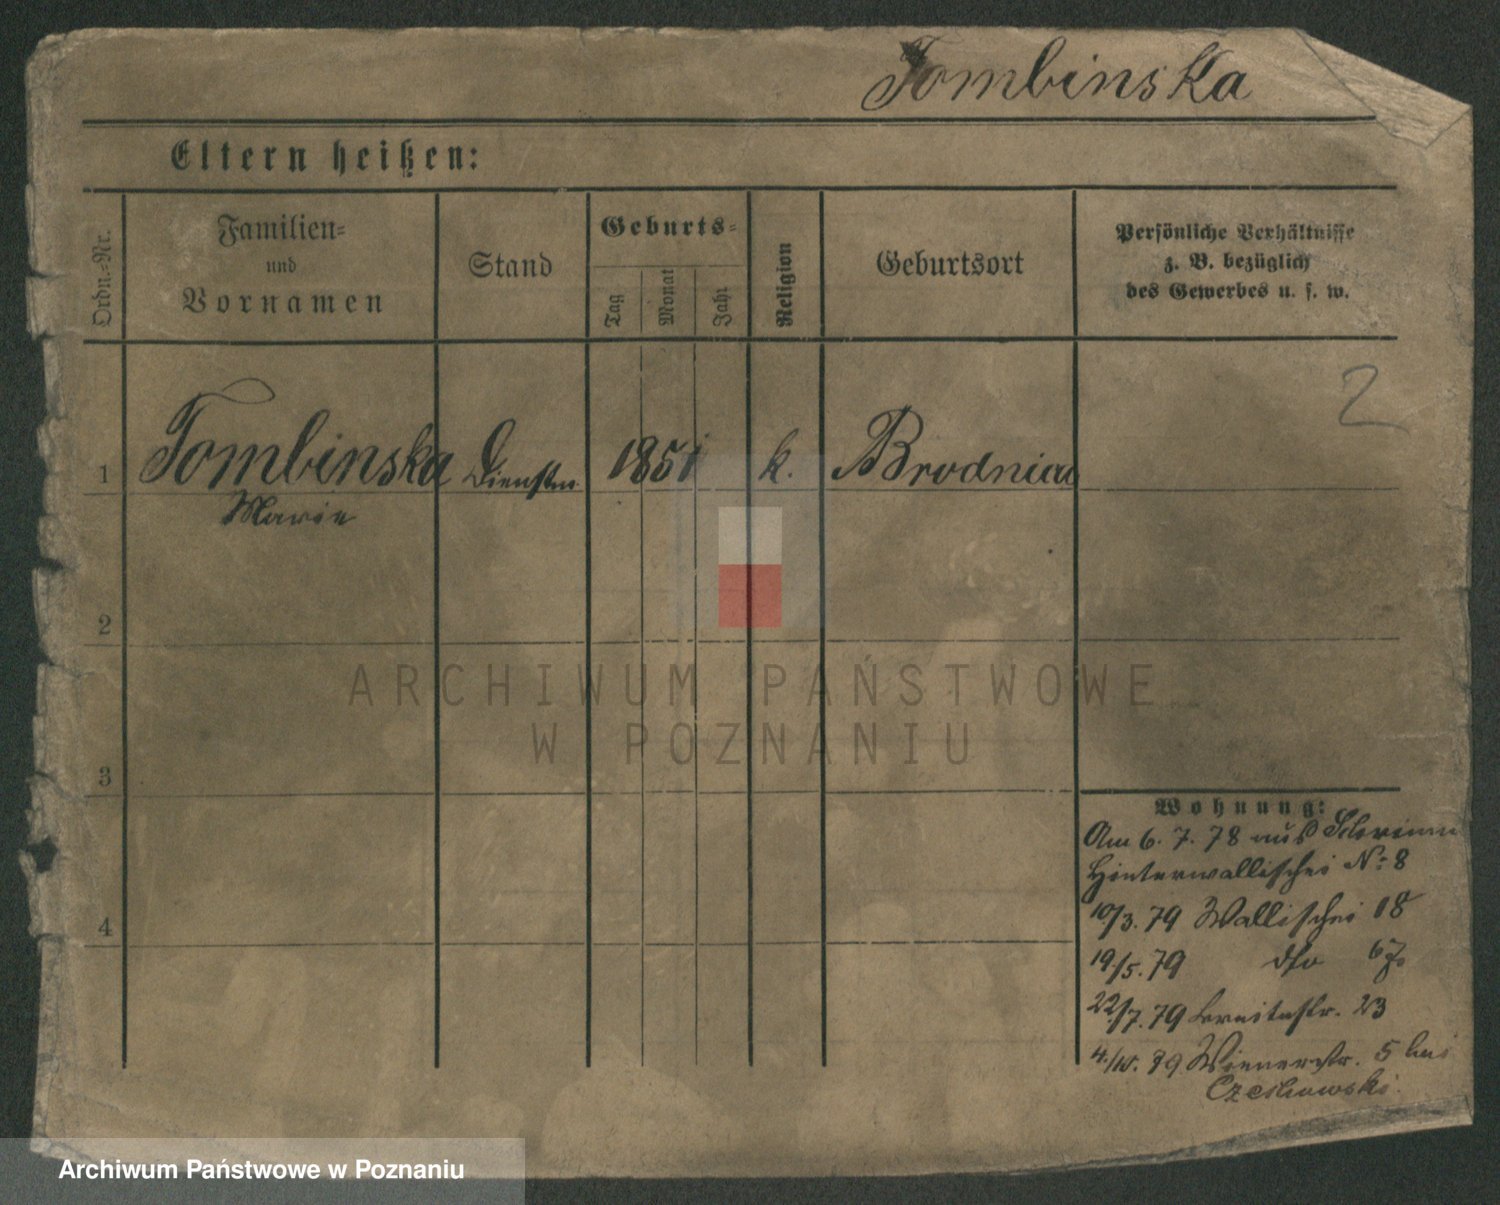 Tombinska
Eltern heißen:
Ordn.=Nr.
Familien=
und
Vornamen
Stand
Geburts=
Tag
Monat
Jahr
Religion
Geburtsort
Persönliche Verhältnisse
z. B. bezüglich
des Gewerbes u. s. w.
2
1 Tombinska Dienstm. 1851 k. Brodnica
Marie
2
3
4
Wohnung:
Am 6. 7. 78 aus
Hinterwallischei No 8
10/3. 79 Wallischei 18
19/5. 79 dto 67.
22/7. 79 Breitestr. 23
4/10. 79 Wienerstr. 5 bei
ARCHIWUM PAŃSTWOWE
W POZNANIU
Archiwum Państwowe w Poznaniu